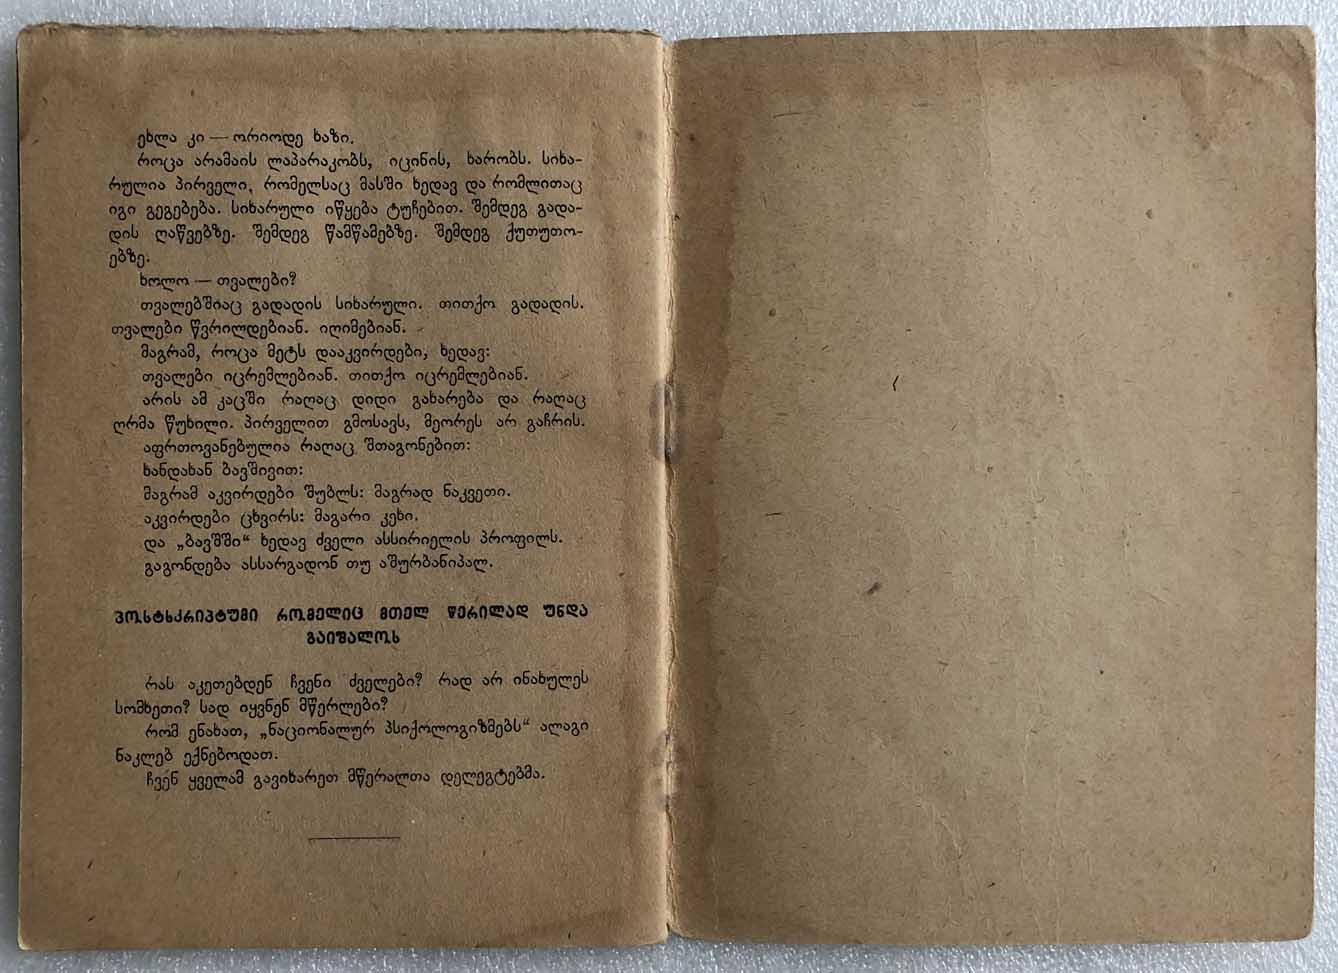 ეხლა კი — ორიოდე ხაზი.
როცა არამაის ლაპარაკობს, იცინის, ხარობს. სიხა-
რულია პირველი, რომელსაც მასში ხედავ და რომლითაც
იგი გეგებება. სიხარული იწყება ტუჩებით. შემდეგ გადა-
დის ღაწვებზე. შემდეგ წამწამებზე. შემდეგ ქუთუთო-
ებზე.
ხოლო — თვალები?
თვალებშიაც გადადის სიხარული. თითქო გადადის.
თვალები წვრილდებიან. იღიმებიან.
მაგრამ, როცა მეტს დააკვირდები, ხედავ:
თვალები იცრემლებიან. თითქო იცრემლებიან.
არის ამ კაცში რაღაც დიდი გახარება და რაღაც
ღრმა წუხილი. პირველით გმოსავს, მეორეს არ გაჩრის.
აფრთოვანებულია რაღაც შთაგონებით:
ხანდახან ბავშივით:
მაგრამ აკვირდები შუბლს: მაგრად ნაკვეთი.
აკვირდები ცხვირს: მაგარი კეხი.
და „ბავშში“ ხედავ ძველი ასსირიელის პროფილს.
გაგონდება ასსარგადონ თუ აშურბანიპალ.
პოსტსკრიპტუმი რომელიც მთელ წერილად უნდა
გაიშალოს
რას აკეთებდენ ჩვენი ძველები? რად არ ინახულეს
სომხეთი? სად იყვნენ მწერლები?
რომ ენახათ, „ნაციონალურ პსიქოლოგიზმებს“ ალაგი
ნაკლებ ექნებოდათ.
ჩვენ ყველამ გავიხარეთ მწერალთა დელეგტებმა.